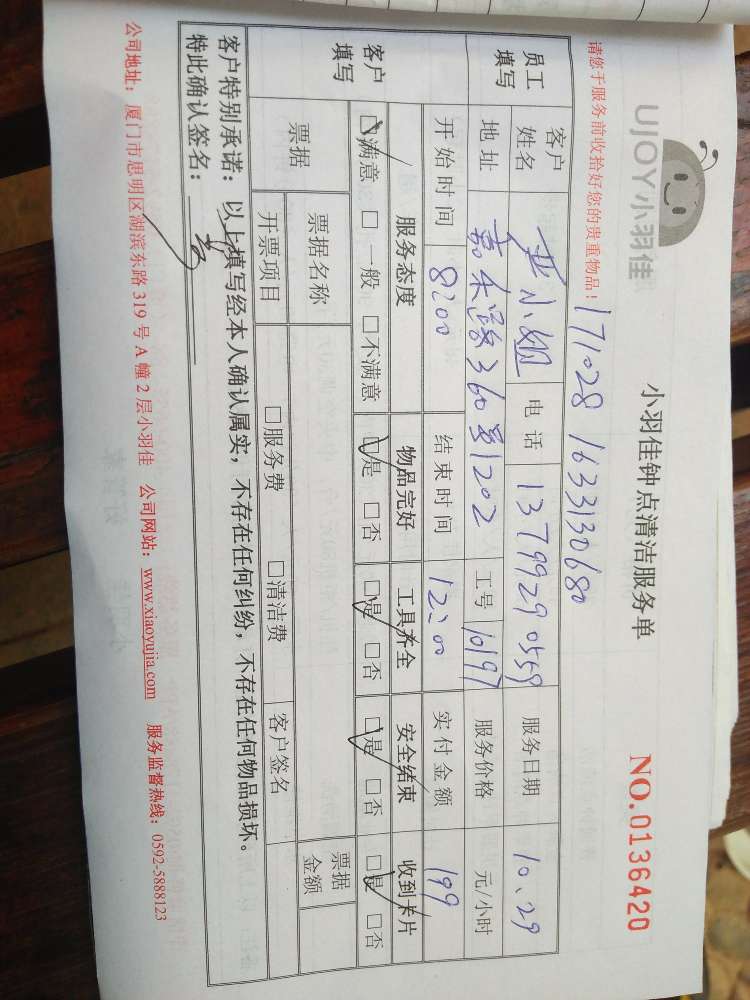 UJOY小羽佳
小羽佳钟点清洁服务单
NO.0136420
请您于服务前收拾好您的贵重物品!
171028 1633130680
员工填写 客户姓名 小姐 电话 13799290559 服务日期 10.29
地址 嘉禾路360号1202 工号 10197 服务价格 元/小时
开始时间 8:00 结束时间 12:00 实付金额 199
客户填写 服务态度 物品完好 工具齐全 安全结束 收到卡片
☑满意 □一般 □不满意 ☑是 □否 ☑是 □否 ☑是 □否 ☑是 □否
票据 票据名称 票据金额
开票项目 □服务费 □清洁费 客户签名
客户特别承诺:以上填写经本人确认属实,不存在任何纠纷,不存在任何物品损坏。
特此确认签名:
公司地址:厦门市思明区湖滨东路319号A幢2层小羽佳 公司网站:www.xiaoyujia.com 服务监督热线:0592-5888123